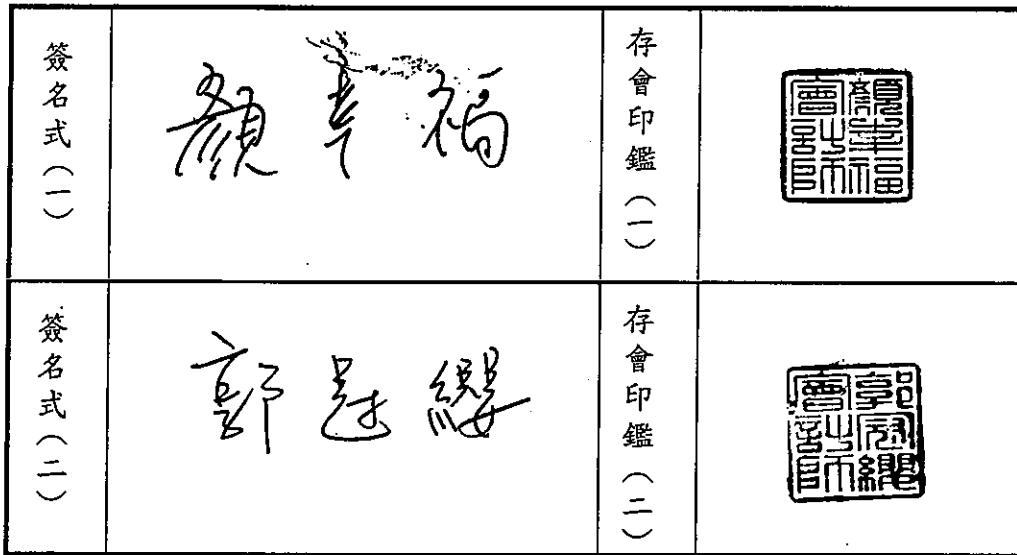 簽名式(一)
顏幸福
存會印鑑(一)
顏幸福
會計師
簽名式(二)
郭冠纓
存會印鑑(二)
郭冠纓
會計師